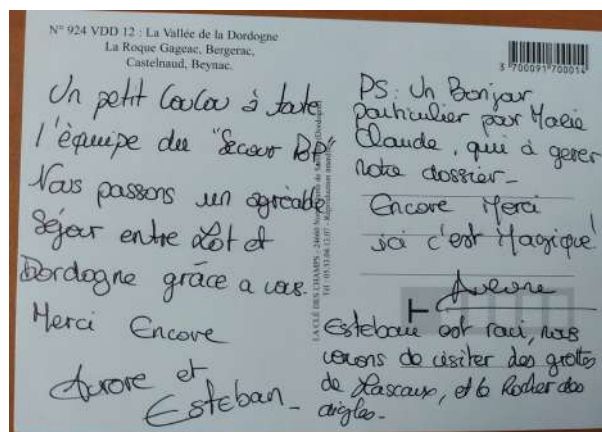 N° 924 VDD 12 : La Vallée de la Dordogne
La Roque Gageac, Bergerac,
Castelnaud, Beynac.
Un petit Coucou à toute
l'équipe du "Secour BP"
Nous passons un agréable
Séjour entre Lot et
Dordogne grâce a vous.
Merci Encore
Aurore et
Esteban -
LA CLÉ DES CHAMPS - 24660
Tél : 05.53.06.12.07 - Reproduction interdite
3 700091 700014
PS : Un Bonjour
particulier pour Marie
Claude, qui à gerer
notre dossier -
Encore Merci
ici c'est Magique !
Aurore
Esteban est ravi, nous
venons de visiter des grottes
de Lascaux, et le Rocher des
aigles -